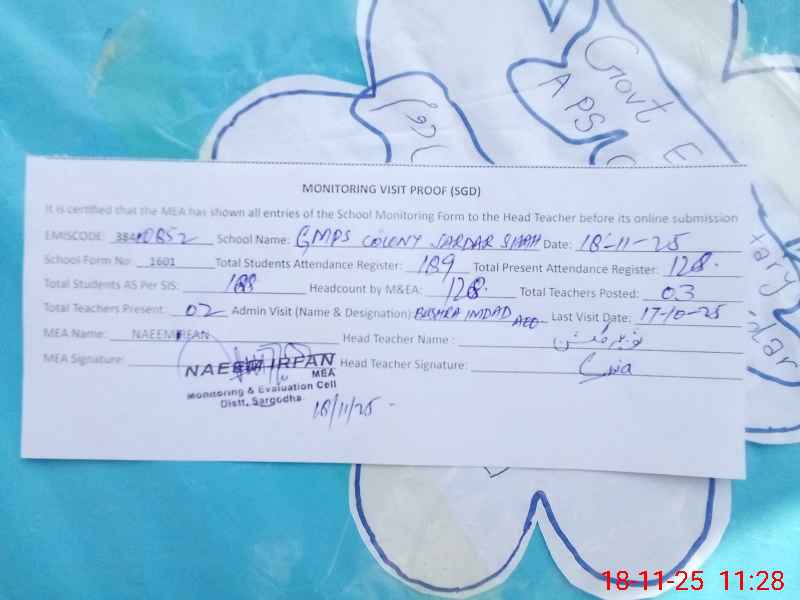 Govt E
APS
MONITORING VISIT PROOF (SGD)
It is certified that the MEA has shown all entries of the School Monitoring Form to the Head Teacher before its online submission
EMISCODE: 38410852 School Name: GMPS COLONY SARDAR SHAH Date: 18-11-25
School Form No: 1601 Total Students Attendance Register: 189 Total Present Attendance Register: 128.
Total Students AS Per SIS: 188 Headcount by M&EA: 128. Total Teachers Posted: 03
Total Teachers Present: 02 Admin Visit (Name & Designation) BUSHRA IMDAD AEO Last Visit Date: 17-10-25
MEA Name: NAEEM IRFAN Head Teacher Name :
MEA Signature: Head Teacher Signature:
NAEEM IRFAN
MEA
Monitoring & Evaluation Cell
Distt. Sargodha
18/11/25
18-11-25 11:28